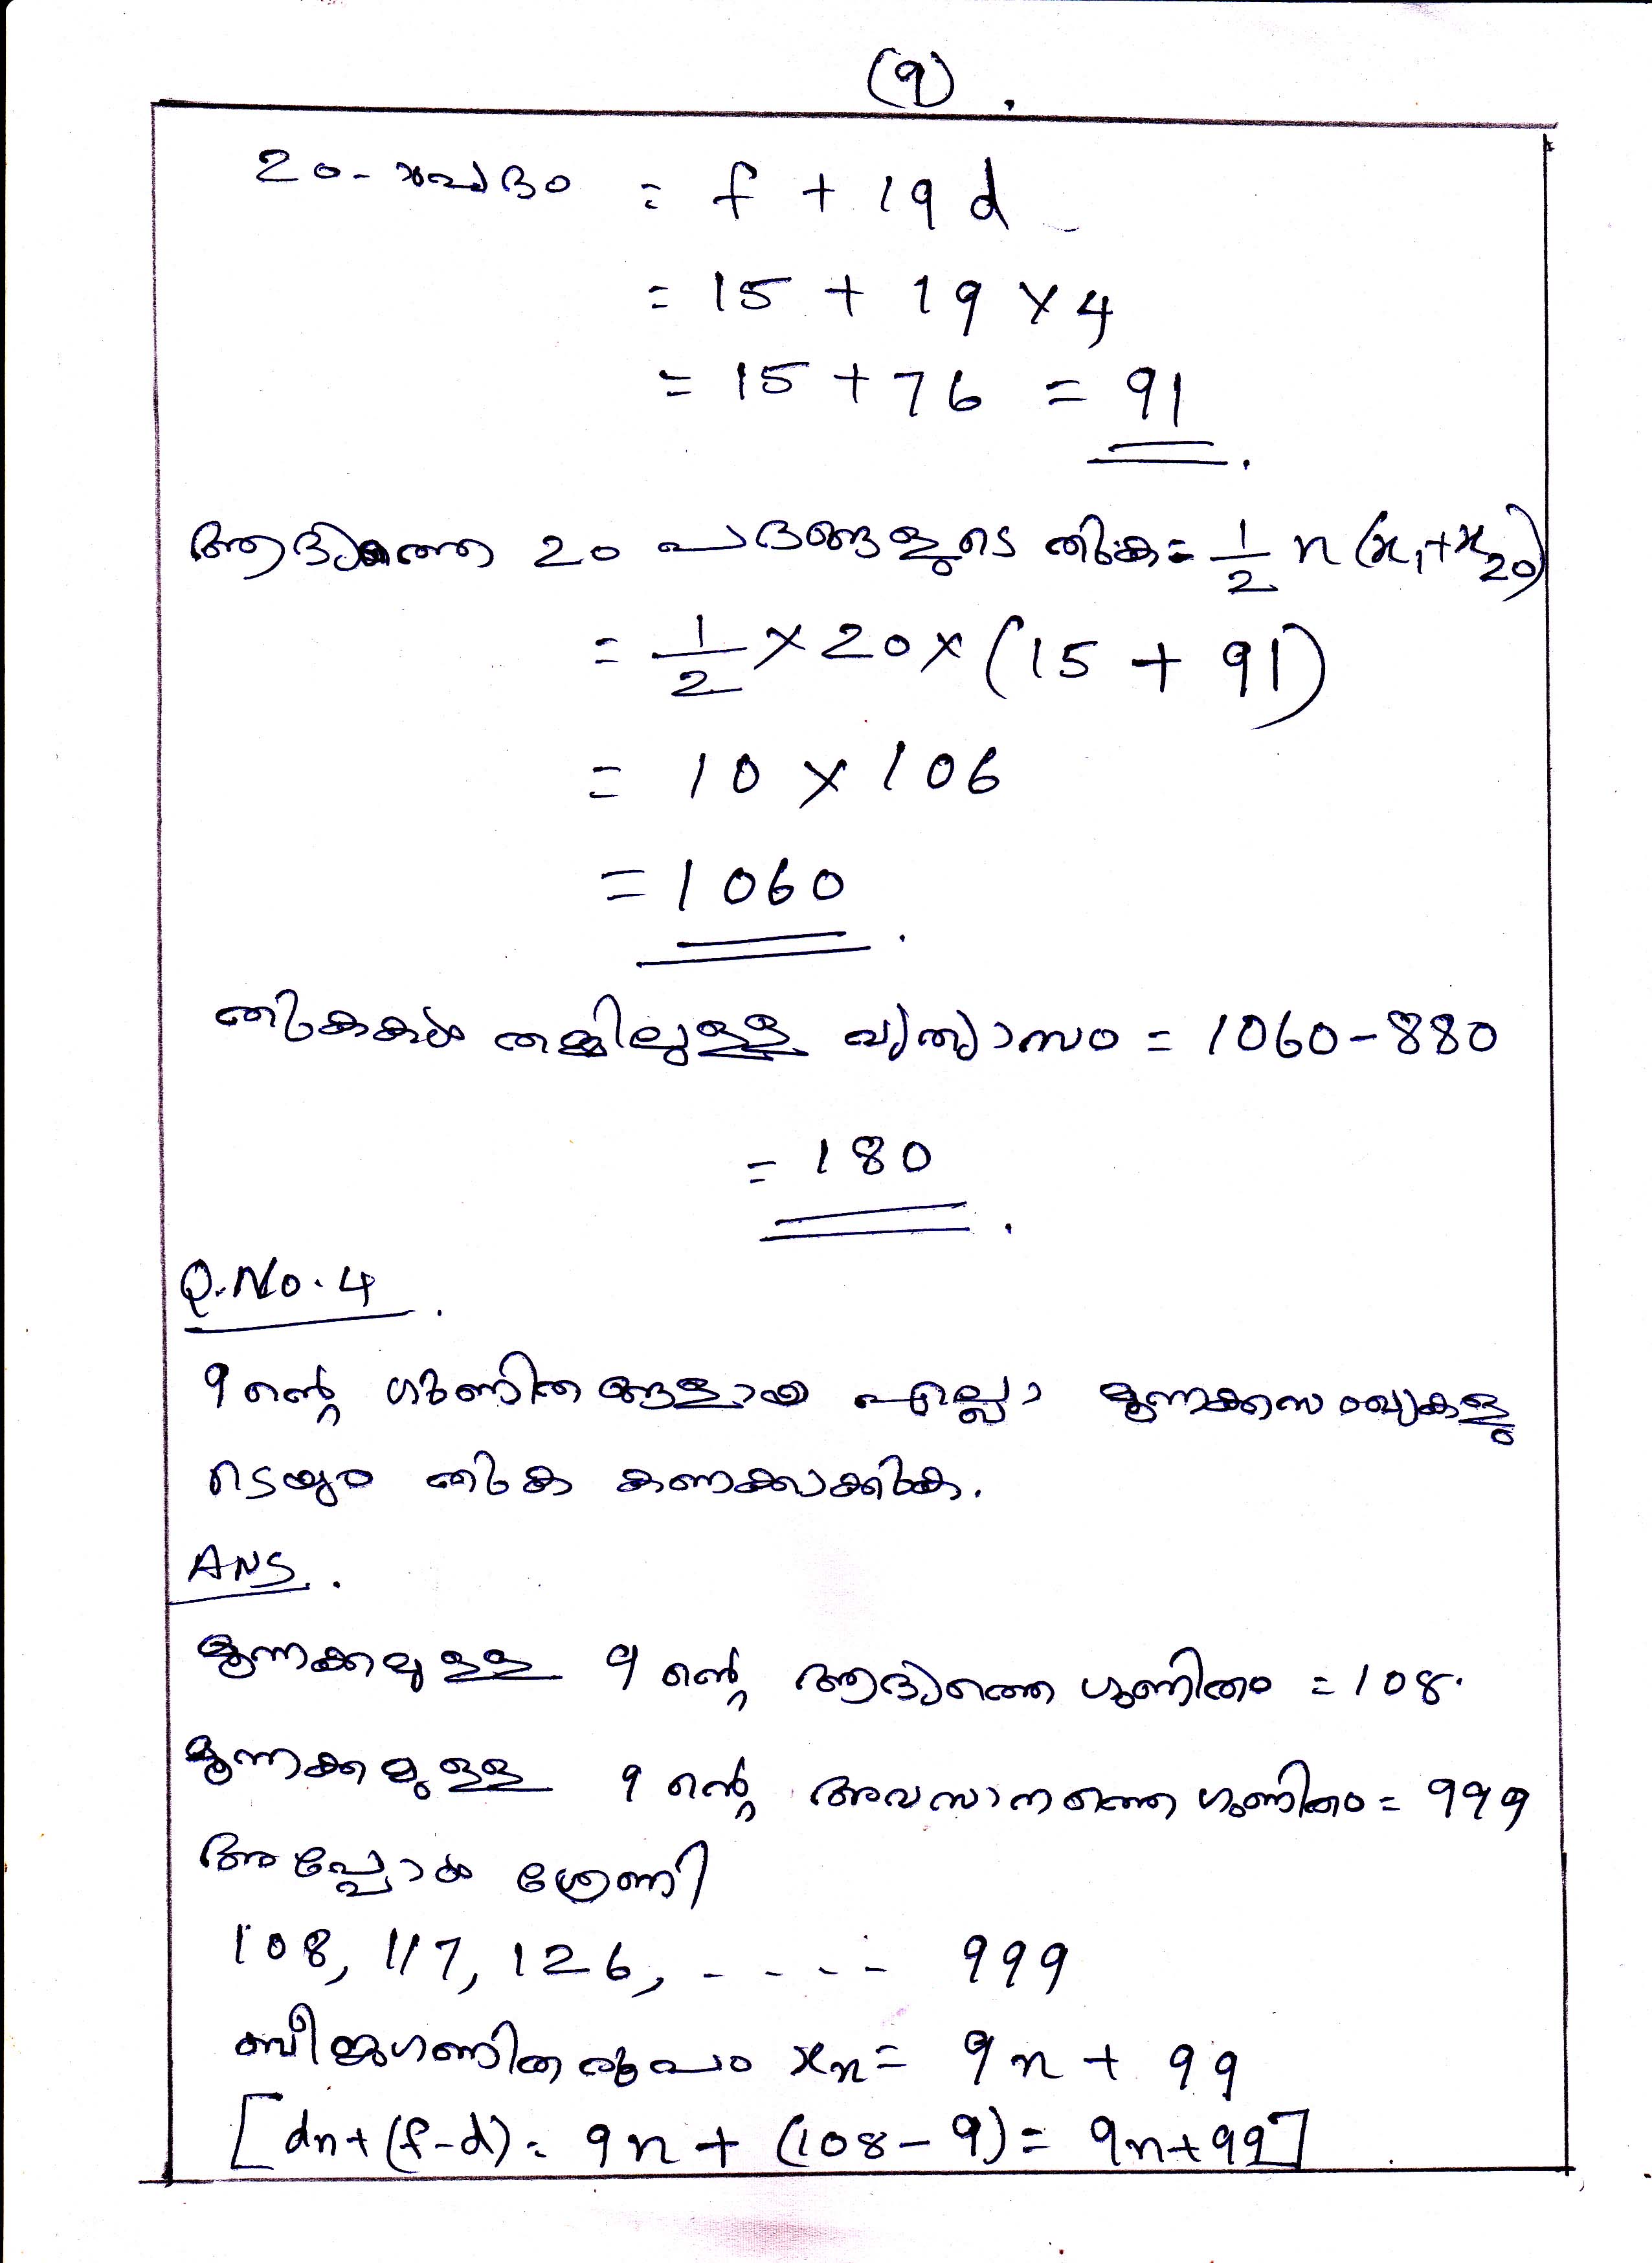 (9).
20-ാംപദം = f + 19d
= 15 + 19 × 4
= 15 + 76 = 91
ആദ്യത്തെ 20 പദങ്ങളുടെ തുക = 1/2 n (x₁+x₂₀)
= 1/2 × 20 × (15 + 91)
= 10 × 106
= 1060.
തുകകൾ തമ്മിലുള്ള വ്യത്യാസം = 1060-880
= 180.
Q.No.4.
9 ന്റെ ഗുണിതങ്ങളായ എല്ലാ മൂന്നക്കസംഖ്യകളു
ടെയും തുക കണക്കാക്കുക.
ANS.
മൂന്നക്കമുള്ള 9 ന്റെ ആദ്യത്തെ ഗുണിതം = 108.
മൂന്നക്കമുള്ള 9 ന്റെ അവസാനത്തെ ഗുണിതം = 999
അപ്പോൾ ശ്രേണി
108, 117, 126, ---- 999
ബീജഗണിതരൂപം xn = 9n + 99
[dn+(f-d) = 9n + (108-9) = 9n+99]